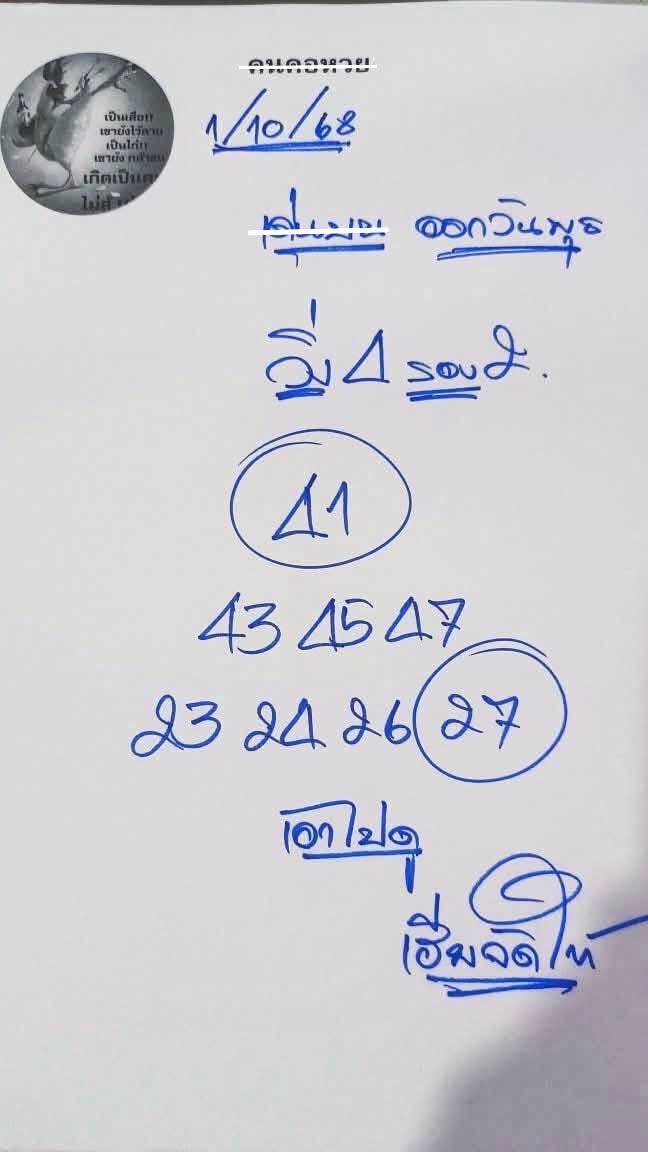 คนคอหวย
เป็นเสือ!!
เขายังไว้ลาย
เป็นไก่!!
เขายัง
เกิดเป็น
1/10/68
ออกวันพุธ
วิ่ง 4 รอง 2.
41
43 45 47
23 24 26 27
เอาไปดู
เฮียจัดให้